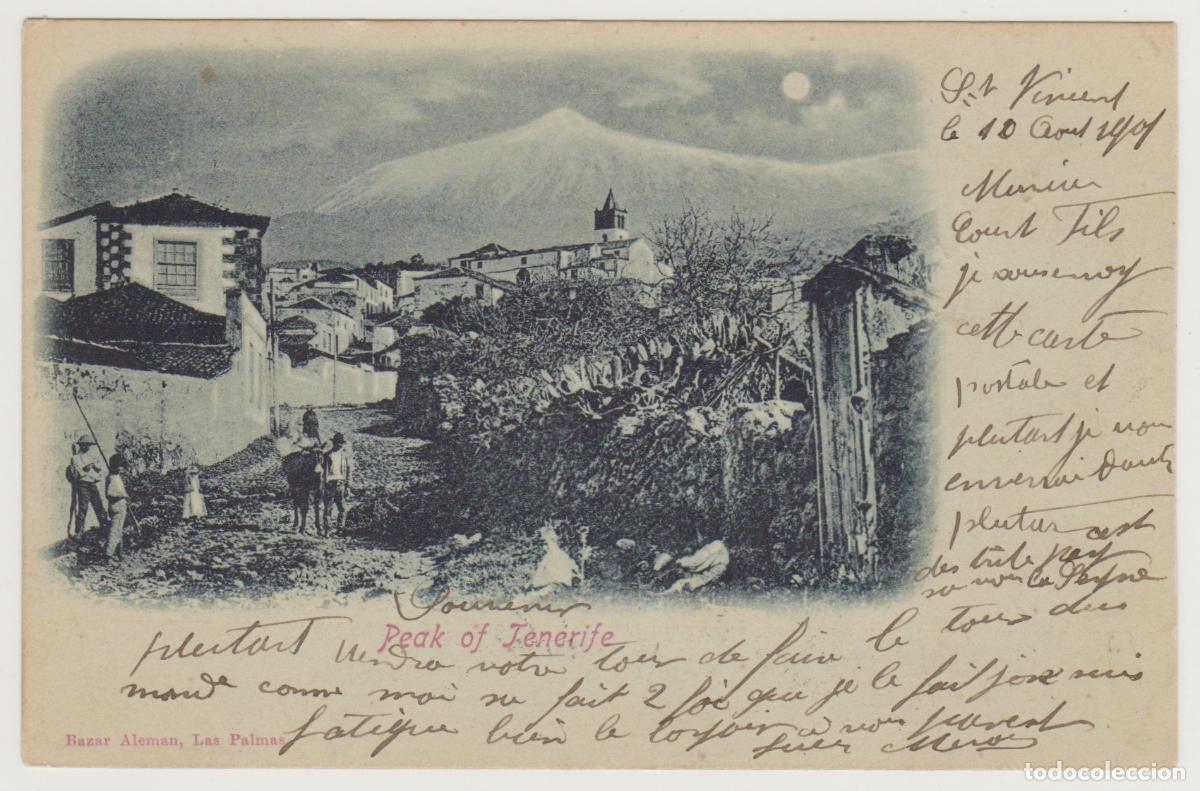 St Vincent
le 12 Aout 1901
Court Fils
je vous envoy
cette carte
postale et
plutart je vous
enverrai
plutar cest
des triste pay
Souvenir
Peak of Tenerife
plutart viendra votre tour de faire le tour du
monde comme moi sa fait 2 foi que je le fait je suis
fatigue bien le bonjoir a vous parent
Bazar Aleman, Las Palmas
todocoleccion